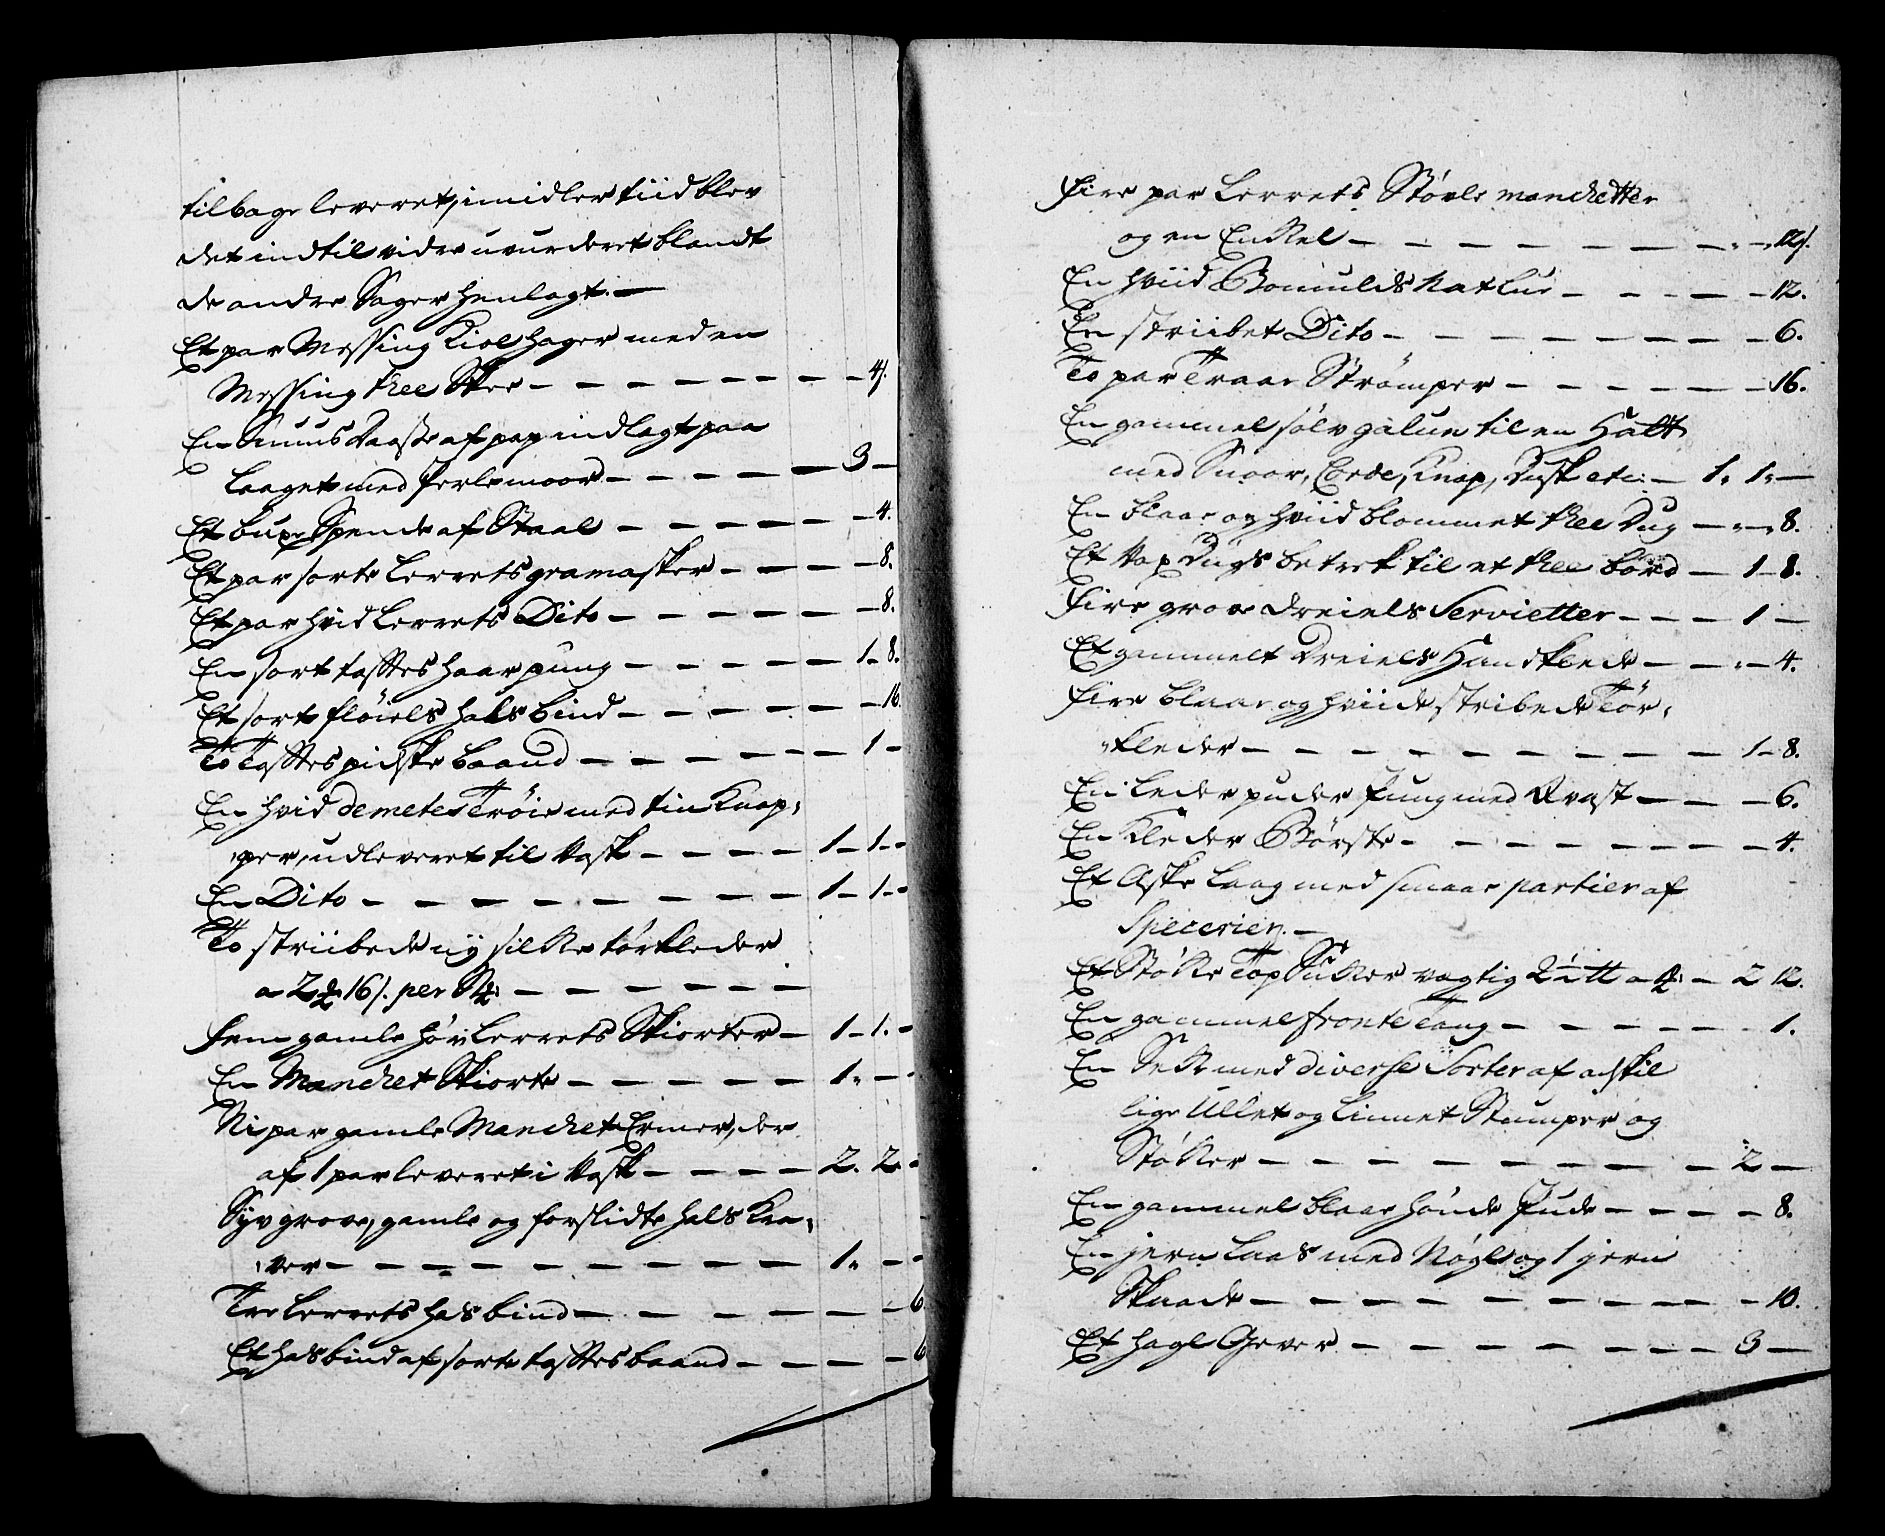 tilbage leveret, imidler tiid blev
det indtil vidre uvurderet blandt
de andre Sager henlagt. —
Et par Messing Kiol hager med en
Messing thee Skee — — — — — — — — 4 s.
En Snuus Daasse af pap indlagt paa
Laaget med Perlemoor — — — — — 3 —
Et buxe Spende af Staal — — — — — — 4.
Et par sorte Lerrets gramasker — — — — 8.
Et par hvid Lerrets Dito — — — — — — 8.
En sort taftes haar pung — — — — — 1 — 8.
Et sort fløiels hals bind — — — — — — 16
To Taftes pidske baand — — — — — — 1 —
En hvid demetes Trøie med tin Knap,
per, udleveret til Vask — — — — 1 — 1 —
En Dito — — — — — — — — 1 — 1 —
To striibede ny silke tørkleder
a 2 16 s. per St: — — — — — — —
fem gamle hør Lerrets Skiorter — 1 — 1. —
En Manchet Skiorte — — — — — 1 " — —
Ni par gamle Manchet Ermer, der
af 1 par leveret i Vask — — — — 2. 2. —
Syv grove, gamle og forslidte hals Kra,
ver — — — — — — — — — 1 " — —
Tre Lerrets hals bind — — — — — — 6.
Et hals bind af sorte taftes baand — — — — — 6
fire par Lerrets Støvle manchetter
og en Enkel — — — — — — — — " — 12 s.
En hviid Bomulds Nat Lue — — — — — 12.
En striibet Dito — — — — — — — — 6.
To par Traae Strømper — — — — — — 16.
En gammel sølv galun til en Hatt
med Snoer, Corde, Knap, Dusk etc: — 1. 1. —
En blaae og hviid blommet thee Dug — " — 8.
Et Vox Dugs betrek til et thee bord — 1 — 8.
fire grove dreiels Servietter — — — 1 —
Et gammelt Dreiels Handklede — — " — 4.
fire blaae og hviide stribede Tør,
kleder — — — — — — — — — 1 — 8.
En Leder puder Pung med Qvast — — — 6.
En Kleder Børste — — — — — — — — 4.
Et Aske Laag med smaae partier af
Specerier. —
Et Støkke Top Sukker vægtig — 2 12.
En gammel fronte Tang — — — — — — 1.
En Sek med diverse Sorter af adskil
lige Ullet og Linnet Stumper og
Støkker — — — — — — — — — 2 —
En gammel blaae hønde Pude — — — — — 8.
En jern Laas med Nøgle og 1 jern
Skaade — — — — — — — — — — 10.
Et hagl Gever — — — — — — — — 3 —